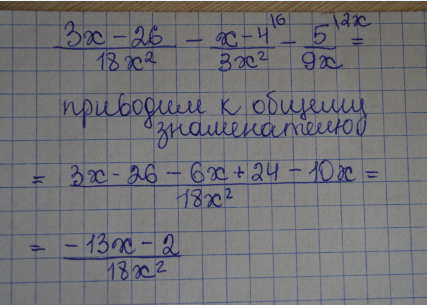 (3x - 26)/(18x²) - (x - 4)/(3x²) \6 - 5/(9x) \2x =
приводим к общему
знаменателю
= (3x - 26 - 6x + 24 - 10x)/(18x²) =
= (-13x - 2)/(18x²)